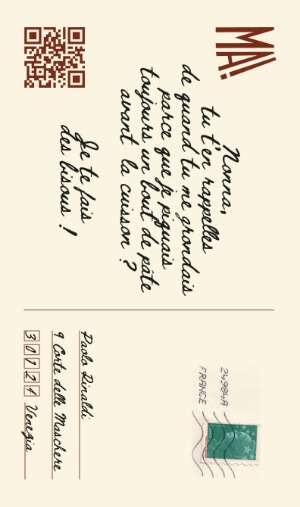 MA!
Nonna,
tu t'en rappelles
de quand tu me grondais
parce que je piquais
toujours un bout de pâte
avant la cuisson ?
Je te fais
des bisous !
24294A
FRANCE
Paolo Rinaldi
9 Corte delle Maschere
30121 Venezia